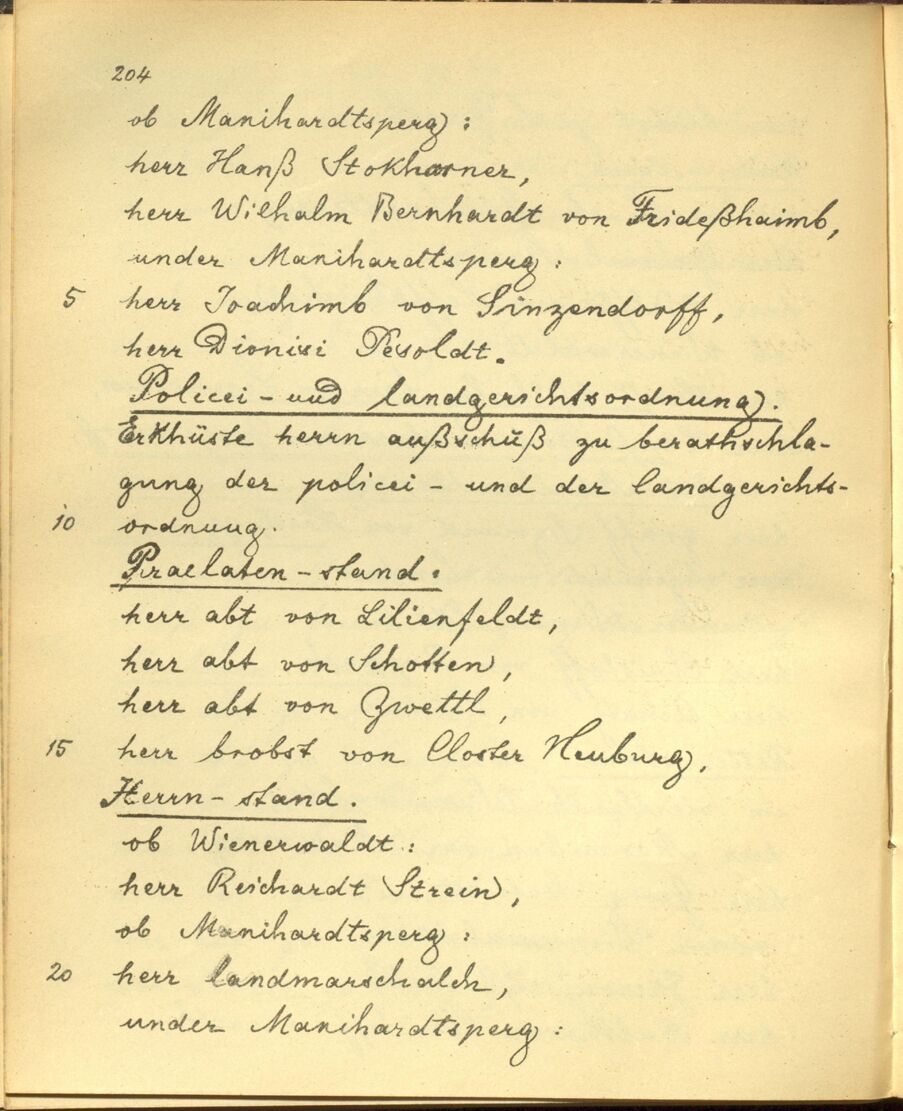 204
ob Manihardtsperg:
herr Hanß Stokharner,
herr Wilhalm Bernhardt von Frideßhaimb,
under Manihardtsperg:
5 herr Joachimb von Sinzendorff,
herr Dionisi Pesoldt.
Policei- und landgerichtsordnung.
Erkhüste herrn außschuß zu berathschla-
gung der policei- und der landgerichts-
10 ordnung.
Praelaten-stand.
herr abt von Lilienfeldt,
herr abt von Schotten,
herr abt von Zwettl,
15 herr brobst von Closter Neuburg,
Herrn-stand.
ob Wienerwaldt:
herr Reichardt Strein,
ob Manihardtsperg:
20 herr landmarschalch,
under Manihardtsperg: